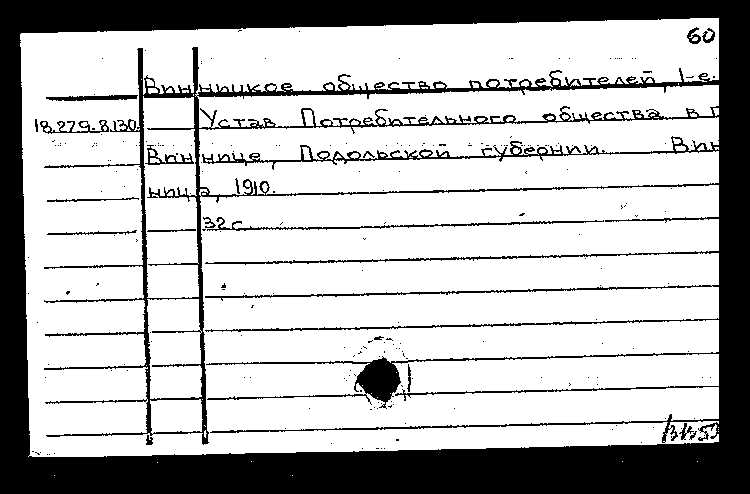 60
Винницкое общество потребителей, 1-е.
18.279.8.130. Устав Потребительного общества в г
Виннице, Подольской губернии. Вин
ница, 1910.
32 с